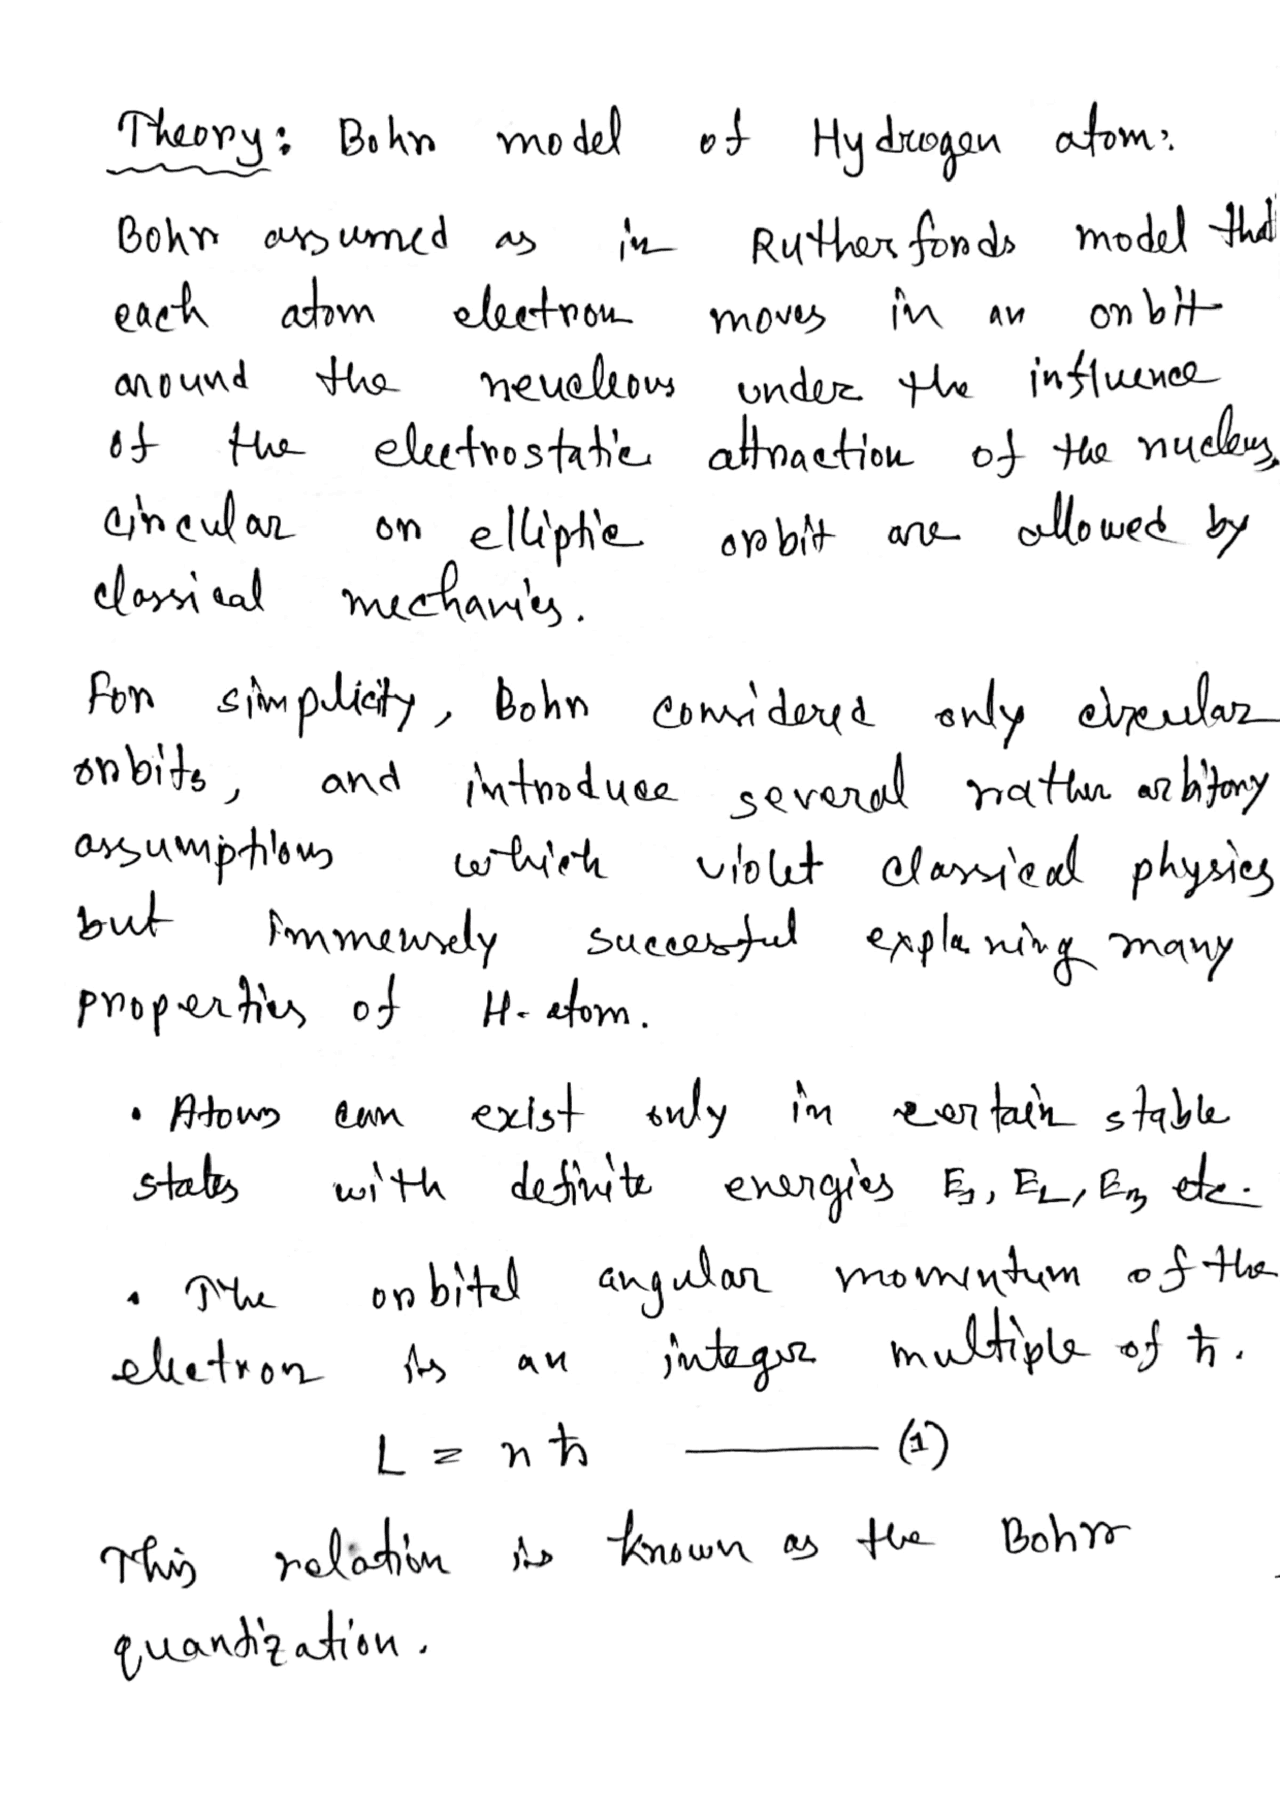 Theory: Bohr model of Hydrogen atom:
Bohr assumed as in Rutherfords model that
each atom electron moves in an orbit
around the neucleous under the influence
of the electrostatic attraction of the nucleus,
circular or elliptic orbit are allowed by
classical mechanics.
For simplicity, Bohr considered only circular
orbits, and introduce several rather arbitory
assumptions which violet classical physics
but immensely succesful explaning many
properties of H-atom.
• Atoms can exist only in certain stable
states with definite energies E₁, E₂, E₃ etc.
• The orbital angular momentum of the
electron is an integer multiple of ħ.
L = nħ ——— (1)
This relation is known as the Bohr
quantization.